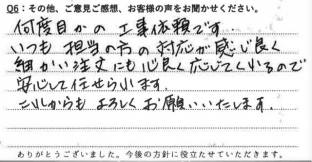 Q6：その他、ご意見ご感想、お客様の声をお聞かせください。
何度目かの工事依頼です。
いつも担当の方の対応が感じ良く
細かい注文にも心良く応じてくれるので
安心して任せられます。
これからもよろしくお願いいたします。
ありがとうございました。今後の方針に役立たせていただきます。